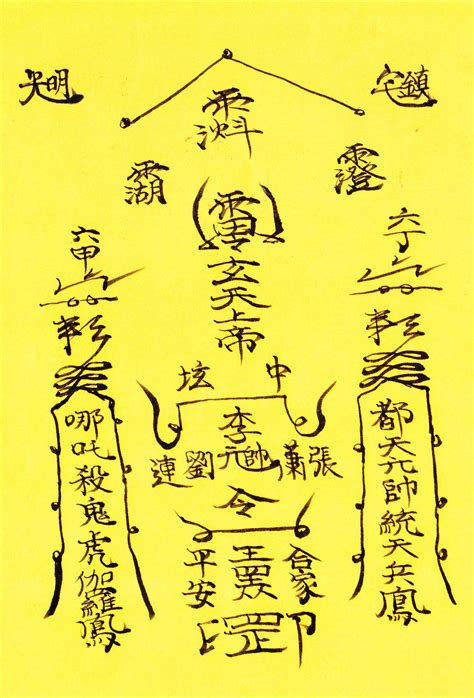 鎮宅
光明
六丁
都天元帥統天兵鳳
玄天上帝
中壇
李元帥
張蕭劉連
令
合家平安
罡印
六甲
哪吒殺鬼虎伽羅鳳